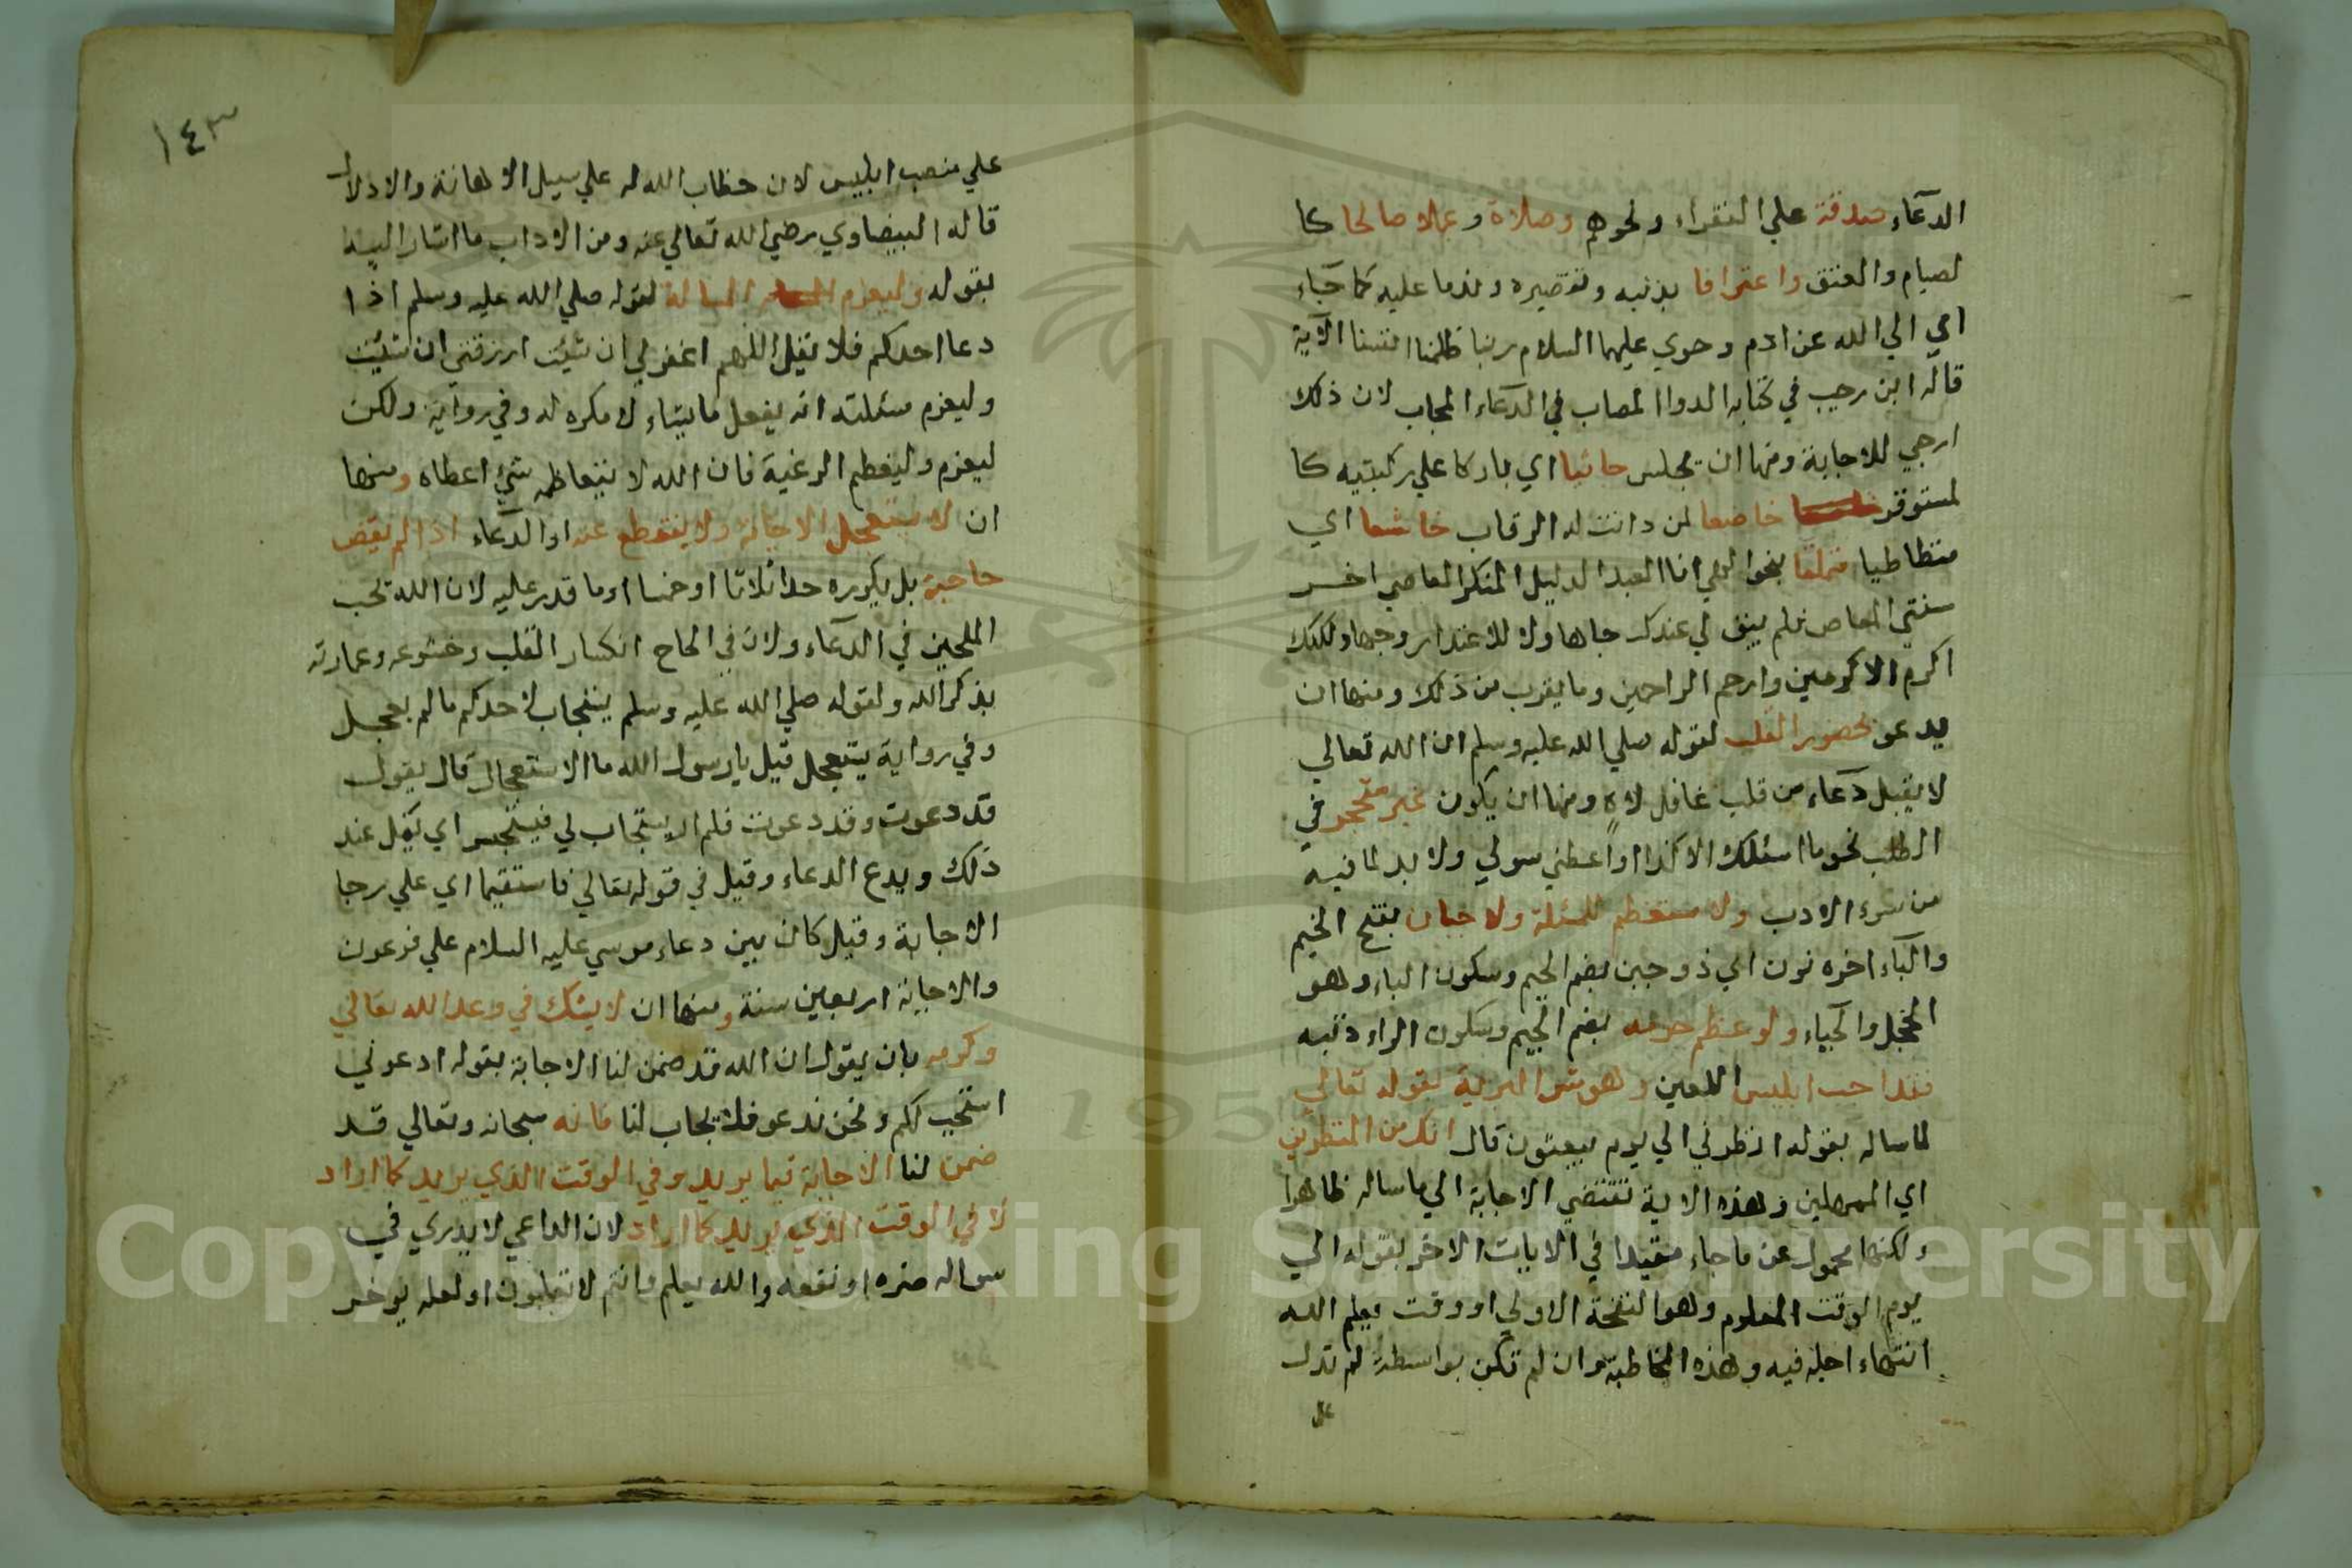 الدعاء صدقة علي الفقراء ونحوهم وصلاة وعملا صالحا كا
لصيام والعتق واعترافا بذنبه وتقصيره وندما عليه كما جاء
اي الي الله عن ادم وحوي عليهما السلام ربنا ظلمنا انفسنا الآية
قاله ابن رجب في كتابه الدوا المصاب في الدعاء المجاب لان ذلك
ارجي للاجابة ومنها ان يجلس جاثيا اي باركا علي ركبتيه كا
لمستوفز خاضعا لمن دانت له الرقاب خاشعا اي
متطاطيا متملقا بنحو الهي انا العبد الدليل المنكر العاصي اخر
ستني المعاص فلم يبق لي عندك جاها ولا للاعتذار وجها ولكنك
اكرم الاكرمين وارحم الراحمين وما يقرب من ذلك ومنها ان
يدعو بحضور القلب لقوله صلي الله عليه وسلم ان الله تعالي
لا يقبل دعاء من قلب غافل لاهٍ ومنها ان يكون غير متحجر في
الطلب نحو ما اسئلك الا كذا او اعطني سولي ولا بد لما فيه
من سوء الادب ولا مستعظم للمسئلة ولا جبان بفتح الجيم
والباء اخره نون اي ذو جبن بضم الجيم وسكون الباء وهو
الخجل والحياء ولو عظم جرمه بضم الجيم وسكون الراء ذنبه
فقد اجيب ابليس اللعين وهو شر البرية بقوله تعالي
لما ساله بقوله انظرني الي يوم يبعثون قال انك من المنظرين
اي الممهلين وهذه الاية تقتضي الاجابة الي ما ساله ظاهرا
ولكنها محمول عن ما جاء مقيدا في الايات الاخر بقوله الي
يوم الوقت المعلوم وهو النفخة الاولي او وقت يعلم الله
انتهاء اجله فيه وهذه المخاطبة وان لم تكن بواسطة لم تدل
علي
١٤٣
علي منصب ابليس لان خطاب الله له علي سبيل الاهانة والاذلال
قاله البيضاوي رضي الله تعالي عنه ومن الاداب ما اشار اليه
بقوله وليعزم المسالة لقوله صلي الله عليه وسلم اذا
دعا احدكم فلا يقل اللهم اغفر لي ان شئت ارزقني ان شئت
وليعزم مسئلته انه يفعل ما يشاء لا مكره له وفي رواية ولكن
ليعزم وليعظم الرغبة فان الله لا يتعاظمه شيئ اعطاه ومنها
ان لا يستعجل الاجابة ولا ينقطع عنه او الدعاء اذا لم يقض
حاجته بل يكرره حدا ثلاثا او خمسا او ما قدر عليه لان الله يحب
الملحين في الدعاء ولان في الحاح انكسار القلب وخشوعه وعمارته
بذكر الله ولقوله صلي الله عليه وسلم يستجاب لاحدكم ما لم يعجل
وفي رواية يستعجل قيل يا رسول الله ما الاستعجال قال يقول
قد دعوت وقد دعوت فلم ار يستجاب لي فيستحسر اي يكل عند
ذلك ويدع الدعاء وقيل في قوله تعالي فاستقيما اي علي رجا
الاجابة وقيل كان بين دعاء موسي عليه السلام علي فرعون
والاجابة اربعين سنة ومنها ان لا يشك في وعد الله تعالي
وكرمه بان يقول ان الله قد ضمن لنا الاجابة بقوله ادعوني
استجب لكم ونحن ندعو فلا يجاب لنا فانه سبحانه وتعالي قد
ضمن لنا الاجابة فيما يريد وفي الوقت الذي يريد كما اراد
لا في الوقت الذي نريد كما اراد لان الداعي لا يدري في
سواله ضره او نفعه والله يعلم وانتم لا تعلمون او لعله يوخر
Copyright © King Saud University
195